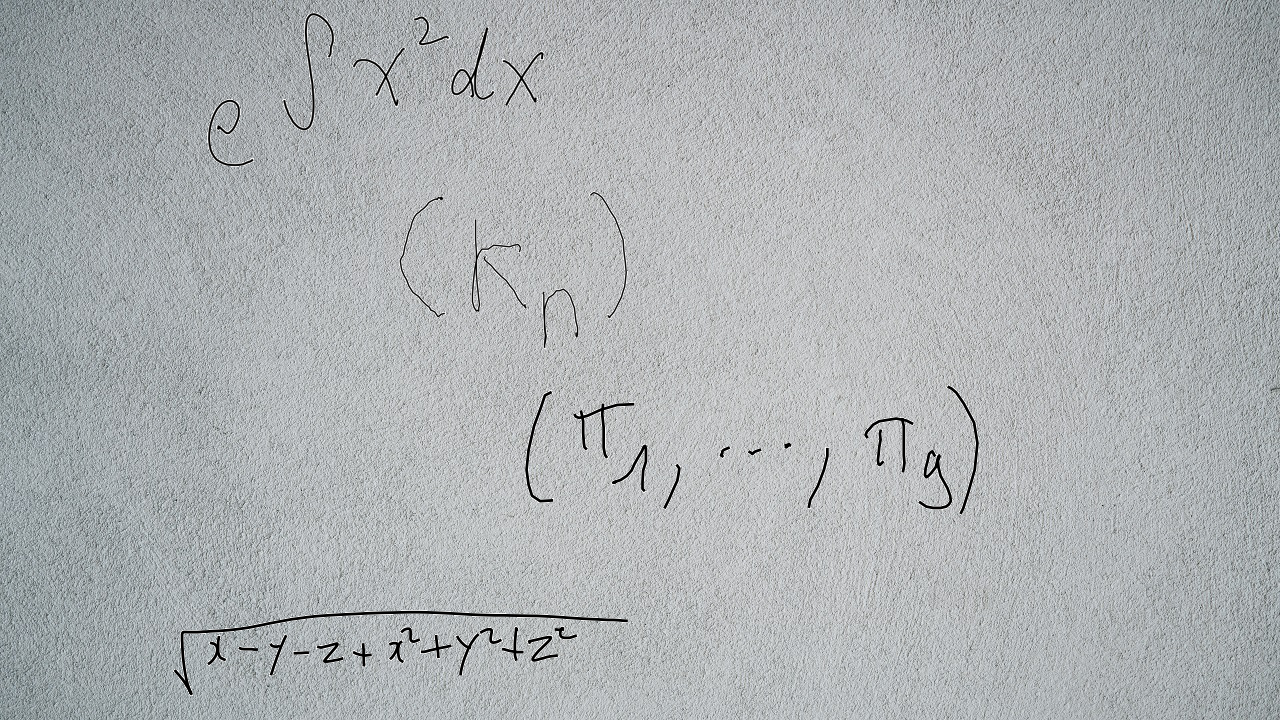 e^{\int x^2 dx}
(k_n)
(\pi_1, \cdots, \pi_g)
\sqrt{x-y-z+x^2+y^2+z^2}